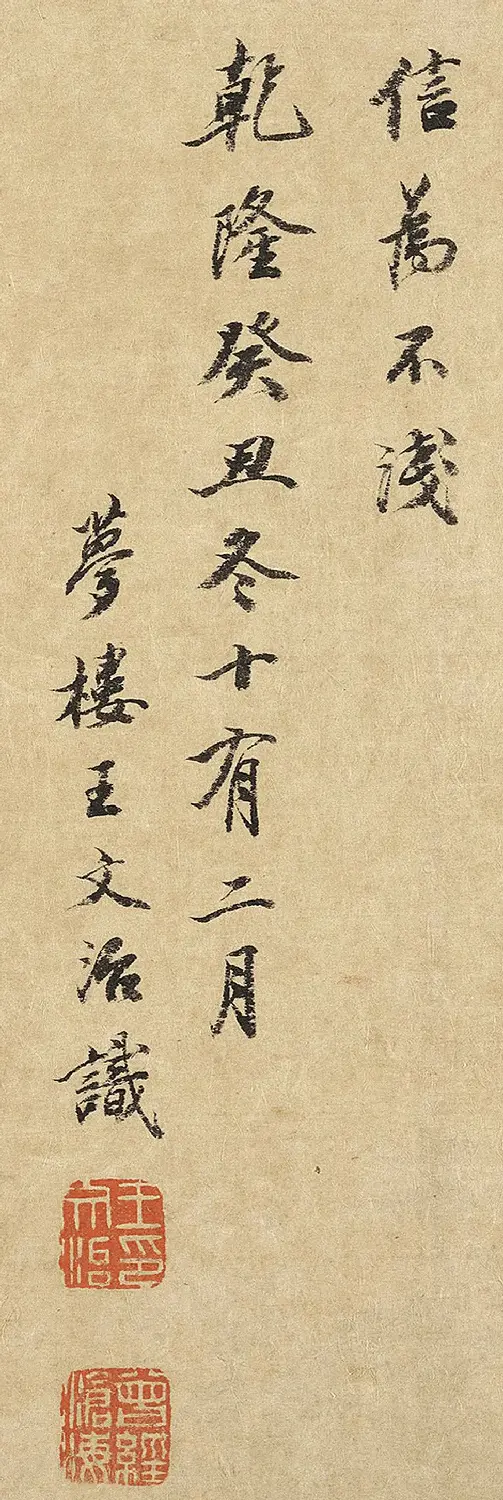 信為不淺
乾隆癸丑冬十有二月
夢樓王文治識
王文治印
曾經滄海